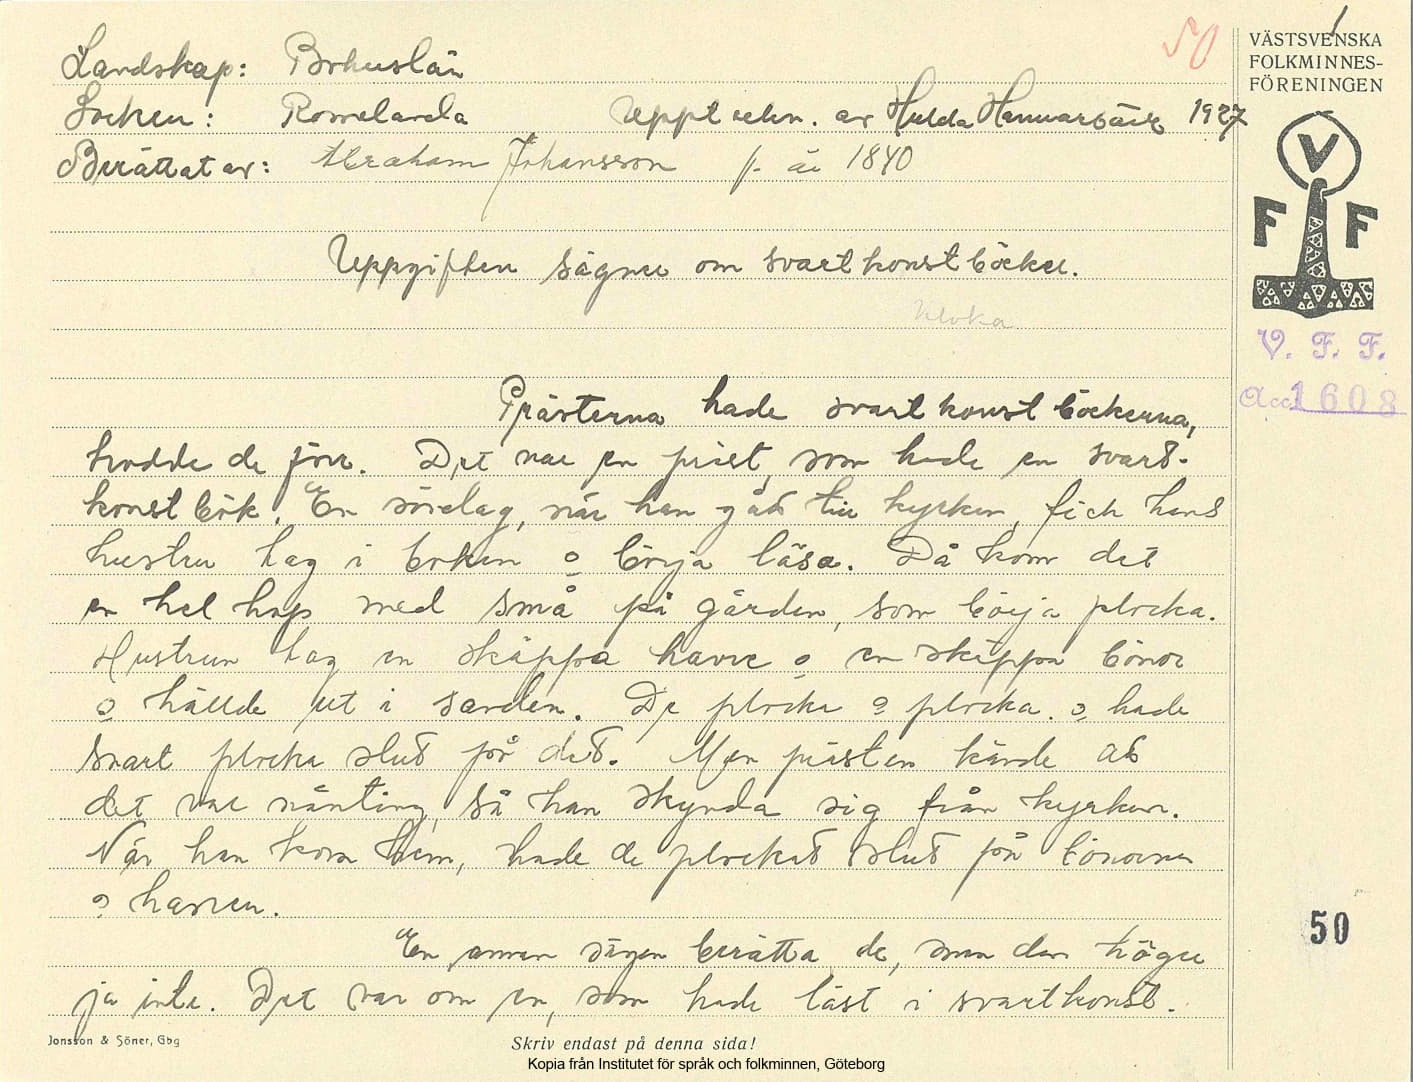 50
VÄSTSVENSKA
FOLKMINNES-
FÖRENINGEN
Landskap: Bohuslän
Socken: Romelanda Uppteckn. av Hulda Hammarbäck 1927
Berättat av: Abraham Johansson f. år 1840
V
F F
Uppgiften sägner om svartkonstböcker.
V. F. F.
Acc. 1608
Prästerna hade svartkonstböckerna,
trodde de förr. Det var en präst, som hade en svart-
konstbok. En söndag, när han gått till kyrkan, fick hans
hustru tag i boken o börja läsa. Då kom det
en hel hop med små på gården, som börja plocka.
Hustrun tog en skäppa havre o en skäppa bönor
o hällde ut i sanden. De plocka o plocka o hade
snart plocka slut på det. Men prästen kände att
det var nånting, så han skynda sig från kyrkan.
När han kom hem, hade de plockat slut på bönorna
o havren.
50
En annan sägen berätta de, men den tog
ja inte. Det var om en, som hade läst i svartkonst-
Jonsson & Söner, Gbg
Skriv endast på denna sida!
Kopia från Institutet för språk och folkminnen, Göteborg